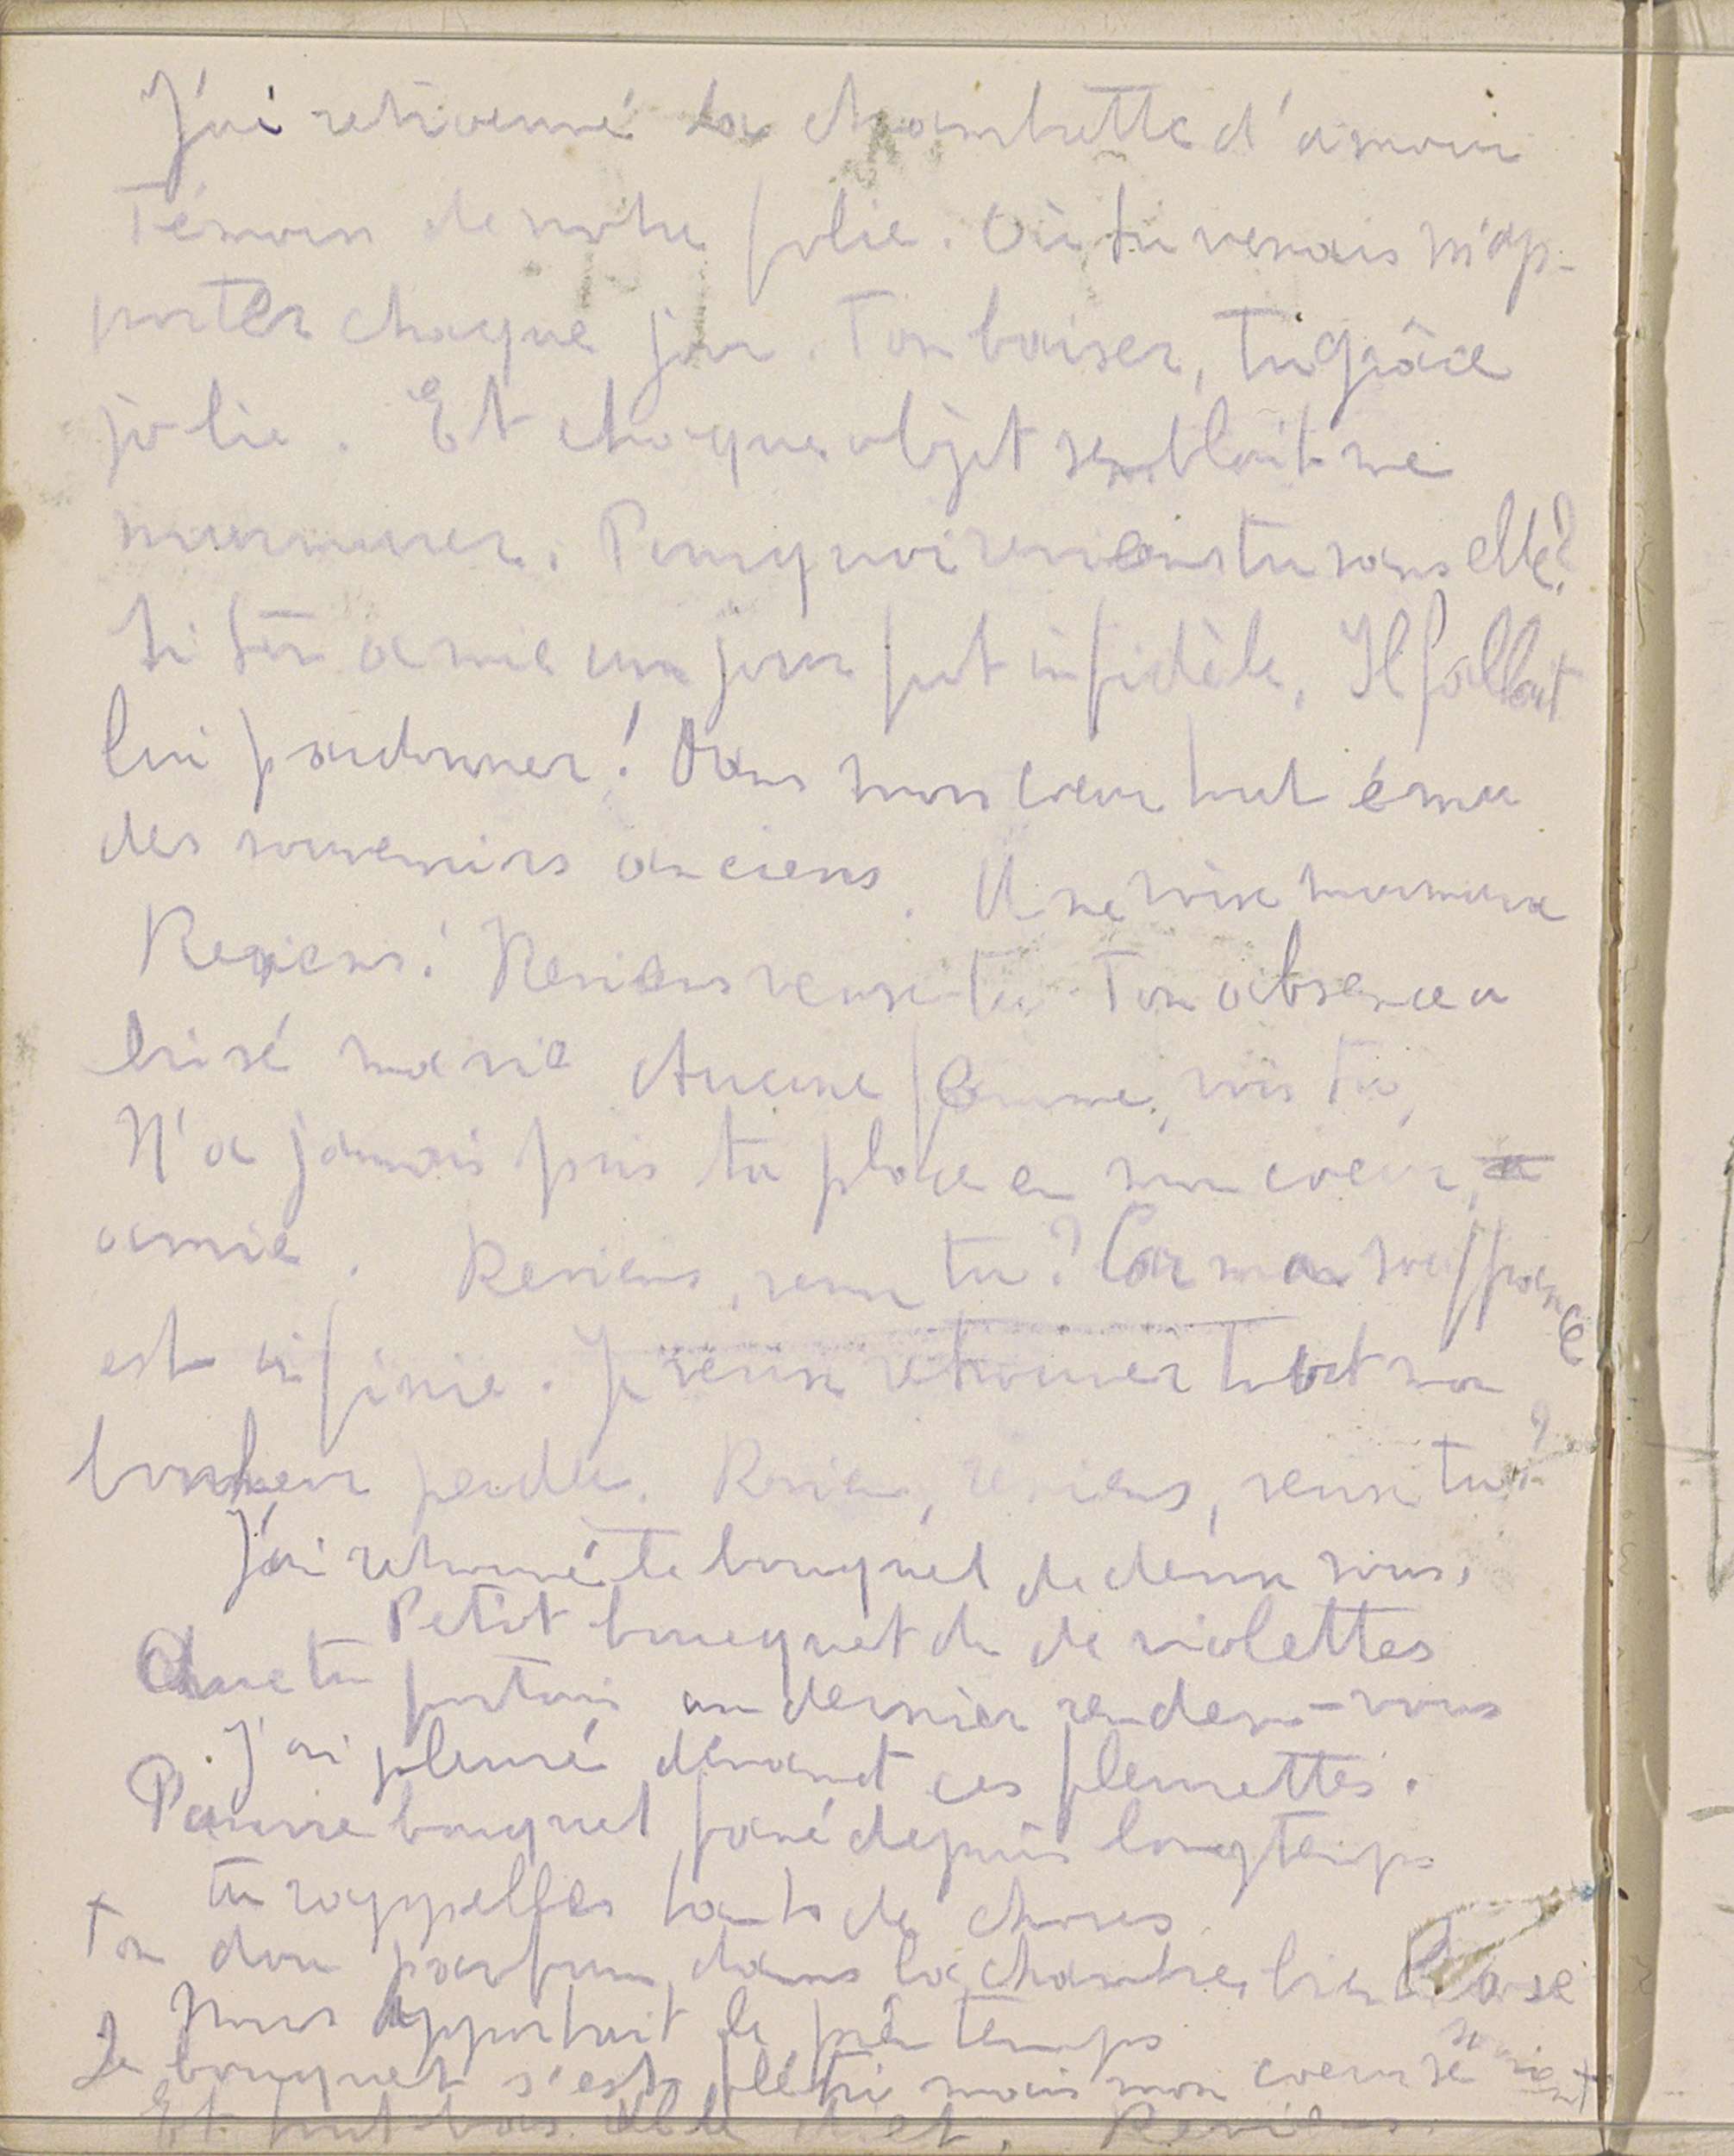 J'ai retrouvé la chambrette d'amour
Témoin de notre folie. Où tu venais m'ap-
porter chaque jour. Ton baiser, ta grâce
jolie. Et chaque objet semblait me
murmurer. Pourquoi reviens tu sans elle?
Si ton amie un jour fut infidèle, Il fallait
lui pardonner! Dans mon coeur tout ému
des souvenirs anciens. Une voix murmure
Reviens! Reviens veux-tu Ton absence a
brisé ma vie Aucune femme, vois tu,
N'a jamais pris ta place en mon coeur,
amie. Reviens, veux tu? Car ma souffrance
est infinie. Je veux retrouver tout mon
bonheur perdu. Reviens, reviens, veux tu?
J'ai retrouvé le bouquet de deux sous,
Petit bouquet de de violettes
Que tu portais au dernier rendez-vous
J'ai pleuré devant ces fleurettes.
Pauvre bouquet fané depuis longtemps
tu rappelles tants de choses
Ton doux parfum, dans la chambre bien close
Nous apportait le printemps
Le bouquet s'est flétri mais mon coeur se souvient
Et tout bas elle dit. Reviens.